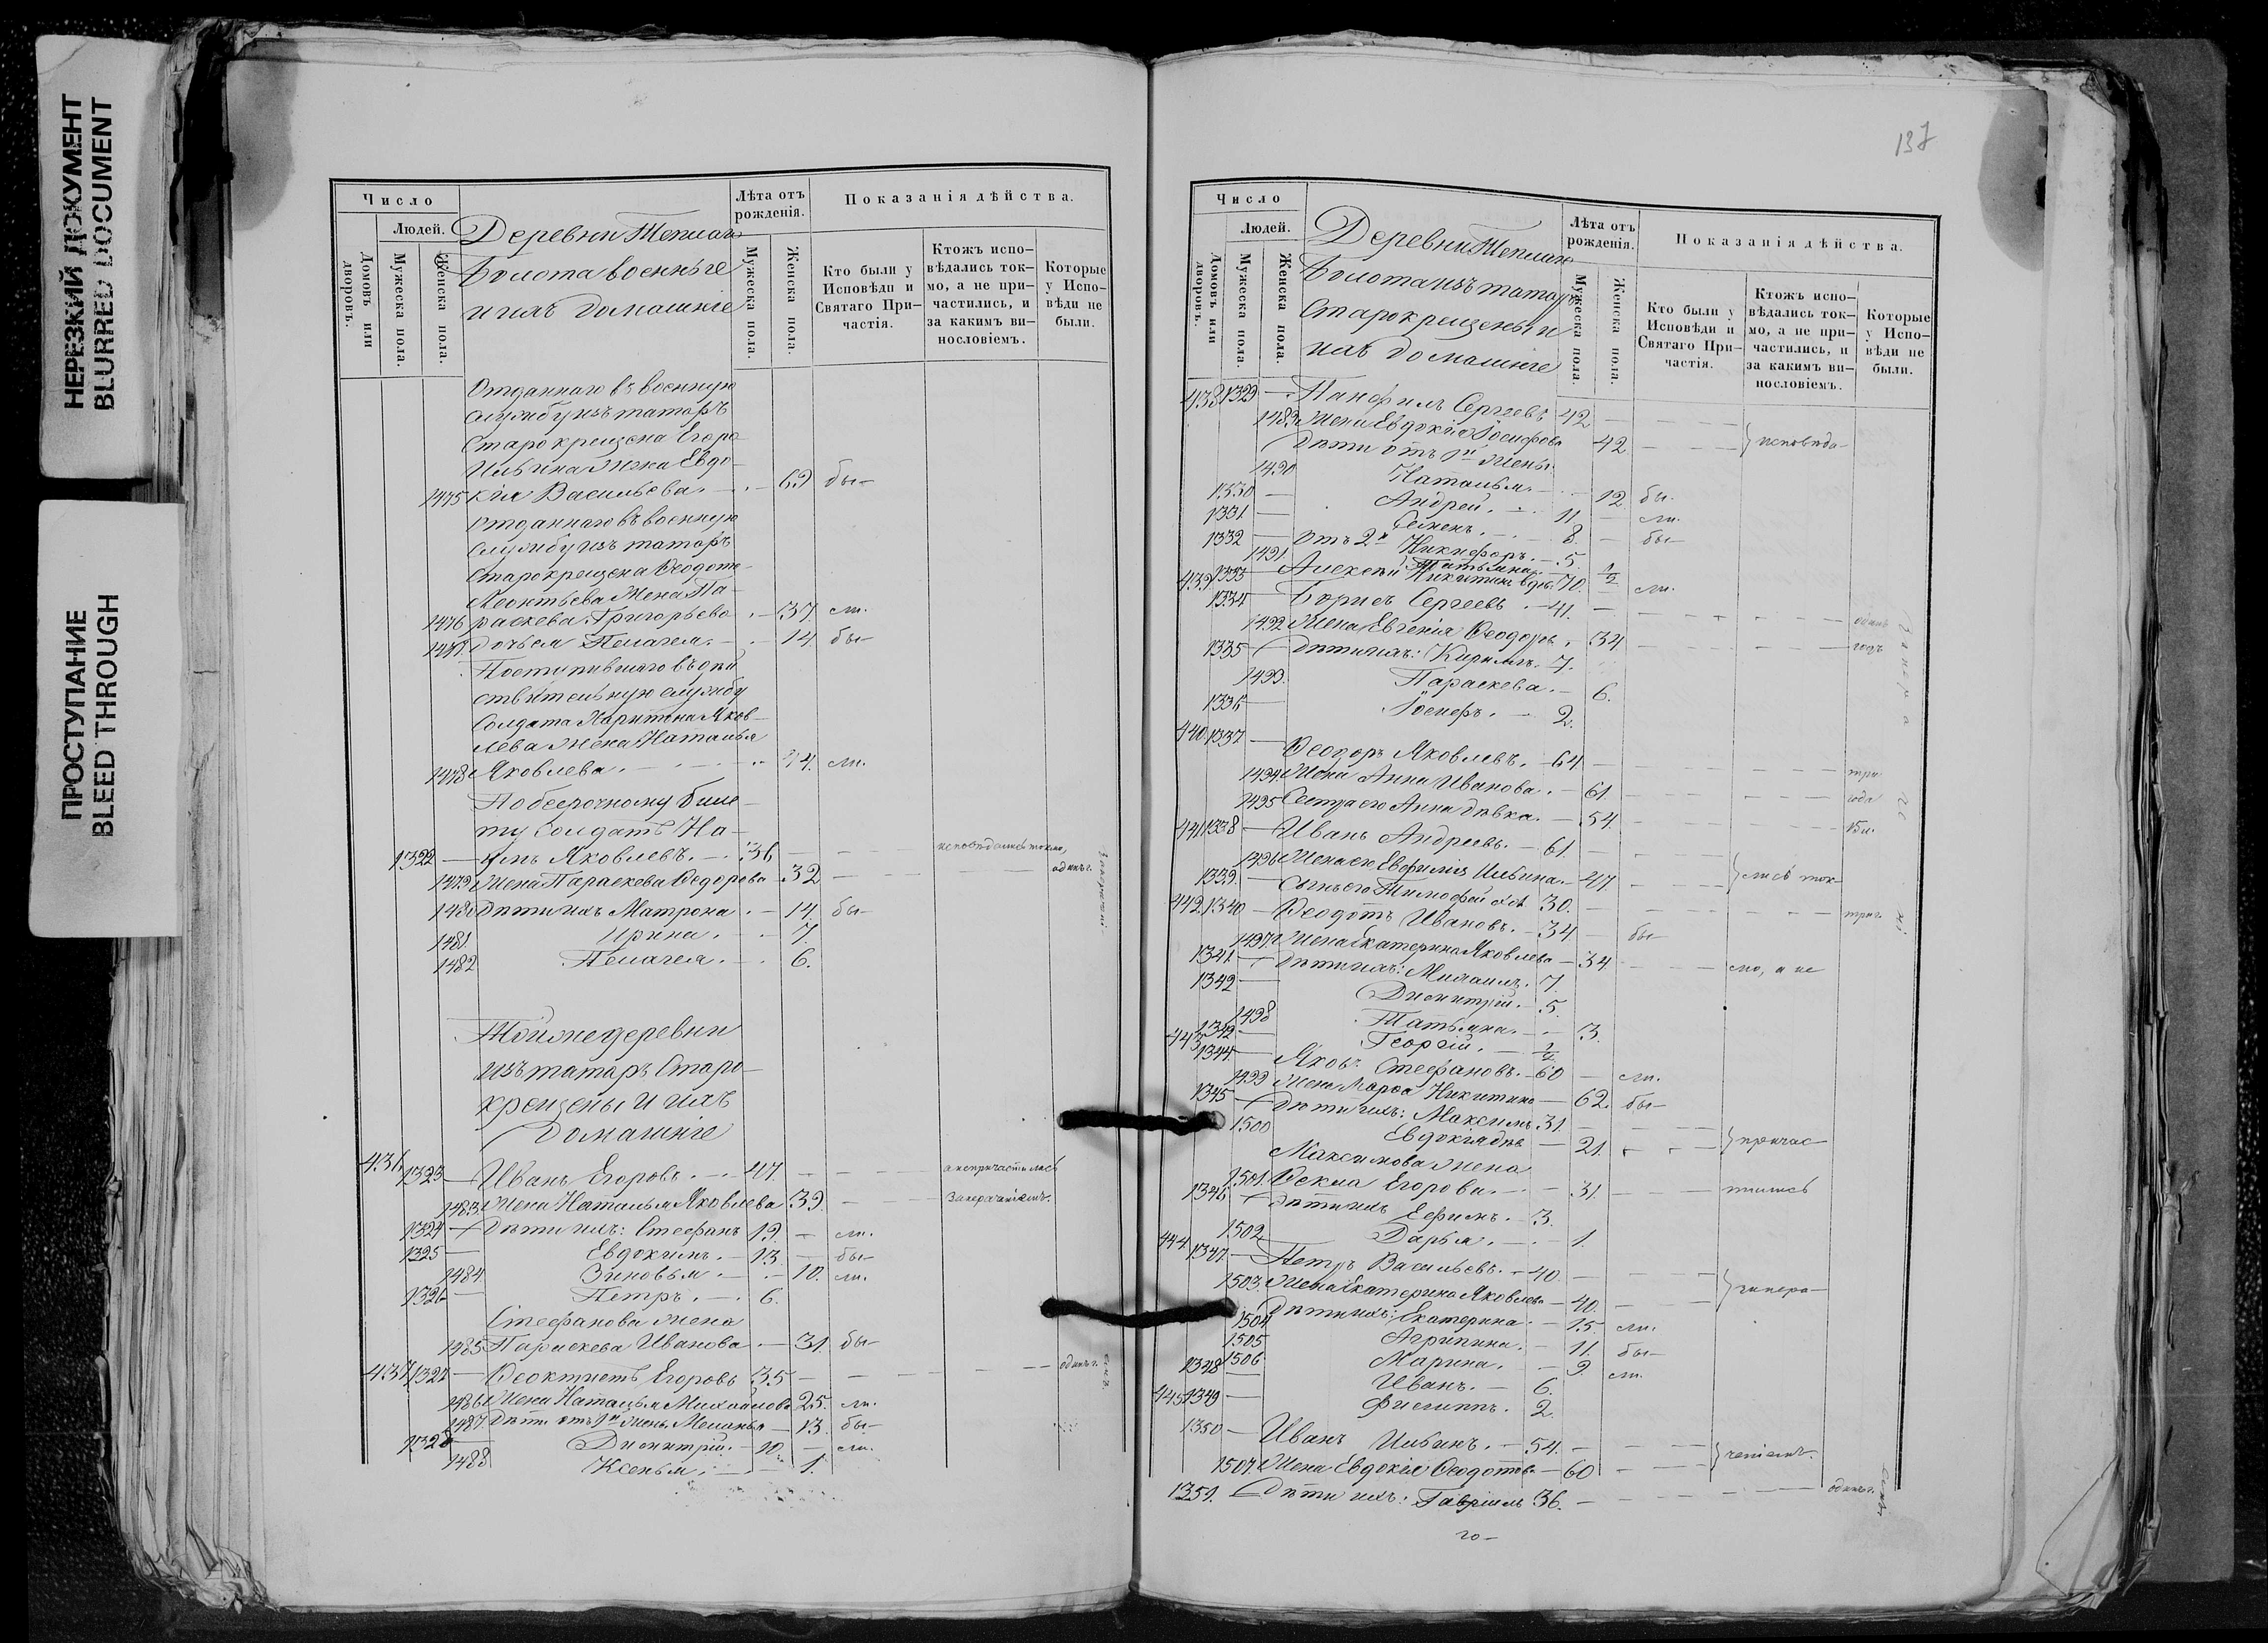 НЕРЕЗКИЙ ДОКУМЕНТ
BLURRED DOCUMENT
ПРОСТУПАНИЕ
BLEED THROUGH
Число
Людей.
Домовъ или дворовъ.
Мужеска пола.
Женска пола.
Деревни Теплаго
Болота военные
и ихъ домашніе
Лѣта отъ рожденія.
Мужеска пола.
Женска пола.
Показанія дѣйства.
Кто были у Исповѣди и Святаго Причастія.
Ктожъ исповѣдались токмо, а не причастились, и за какимъ винословіемъ.
Которые у Исповѣди не были.
Отданнаго въ военную
службу изъ татаръ
Старокрещена Егора
Ильина жена Евдо-
1475 кія Васильева. — 69 бы-
Отданнаго въ военную
службу изъ татаръ
Старокрещена Ѳеодота
Леонтьева жена Па-
1476 раскева Григорьева — 37. ли.
1477. дочь ея Пелагея. — 14 бы-
Поступившаго въ дѣй
ствительную службу
Солдата Харитона Яков-
лева жена Наталья
1478 Яковлева. — 4. ли.
По безсрочному биле-
ту солдатъ На-
1322 — Яковлевъ. — 36 — исповѣдались токмо,
1479 Жена Параскева Ѳедорова — 32 — одинъ г.
1480 Дѣти ихъ Матрона. — 14. бы-
1481. Ирина. — 7.
1482 Пелагея. — 6.
Той же деревни
изъ татаръ Старо-
крещены и ихъ
домашніе
436. 1323 — Иванъ Егоровъ. — 47. — а не причастились
1483. Жена Наталья Яковлева 39. — за нерачѣніемъ.
1324 — Дѣти ихъ: Стефанъ 19. — ли.
1325 — Евдокимъ. — 13. — бы-
1484. Зиновья. — 10. ли.
1326 — Петръ. — 6.
Стефанова жена
1485 Параскева Иванова. — 31. бы-
437 1327 — Ѳеоктистъ Егоровъ 35 — одинъ г.
1486 Жена Наталья Михайлова 25. ли.
1487. Дѣти отъ 1й жены Меланья — 13. бы-
1328 — Димитрій. — 10. — ли.
1488 Ксенья. — 1.
137
Число
Людей.
Домовъ или дворовъ.
Мужеска пола.
Женска пола.
Деревни Теплаго
Болота изъ татаръ
Старокрещены и
ихъ домашніе
Лѣта отъ рожденія.
Мужеска пола.
Женска пола.
Показанія дѣйства.
Кто были у Исповѣди и Святаго Причастія.
Ктожъ исповѣдались токмо, а не причастились, и за какимъ винословіемъ.
Которые у Исповѣди не были.
438. 1329 — Панфилъ Сергеевъ 42 —
1489. Жена Евдокія Іосифова 42 — исповѣда-
Дѣти отъ 1й жены
1490 Наталья. — 12. бы.
1330 — Андрей. — 11. — ли.
1331 — 8. — бы-
1332 — отъ 2й Никифоръ. — 5.
1491. Татьяна. — 1/2
439. 1333 — Алексѣй Никитинъ вдв. 70. — ли.
1334 — Борисъ Сергеевъ. — 41. — одинъ
1492 Жена Евгенія Ѳеодоров. 34 — годъ
1335 — Дѣти ихъ: Кириллъ. 7.
1493. Параскева. — 6.
1336 — Іосифъ. — 2.
440. 1337 — Ѳеодоръ Яковлевъ. — 64 — три
1494. Жена Анна Иванова. — 61. — года
1495 Сестра его Анна дѣвка. — 54. —
441. 1338 — Иванъ Андреевъ. — 61. —
1496 Жена его Евфимія Ильина. — 47 — лись ток-
1339. — Сынъ его Тимофей 30. —
442. 1340 — Ѳеодотъ Ивановъ. — 34 — бы-
1497. Жена Екатерина Яковлева — 34 — мо, а не
1341 — Дѣти ихъ: Михаилъ. 7.
1342 — Димитрій. — 5.
1498 Татьяна. — 3.
1342 — Георгій. — 1/2
443 1344 — Яковъ Стефановъ. — 60 — ли.
1499 Жена Марѳа Никитина — 62. бы-
1345 — Дѣти ихъ: Максимъ 31. —
1500 Евдокія дѣв — 21. — причас-
Максимова жена
1501. Ѳекла Егорова. — 31. — тились
1346 — Дѣти ихъ Ефимъ. — 3.
1502 Дарья. — 1.
444 1347. — Петръ Васильевъ. — 40. —
1503. Жена Екатерина Яковлева — 40. — за нера-
1504. Дѣти ихъ: Екатерина. — 15. ли.
1505 Агрипина. — 11. бы-
1506. Марина. — 9. ли.
1348 — Иванъ. — 6.
1349 — Филиппъ. — 2.
445 1350 — Иванъ Ильинъ. — 54. —
1507. Жена Евдокія Ѳеодотова — 60 — чѣніемъ.
1351. — Дѣти ихъ: Гавріилъ 36. — одинъ г.
го-